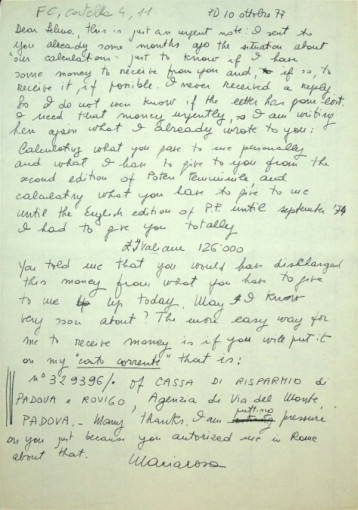 FC, cartella 4, 11
PD 10 ottobre 77
Dear Selma, this is just an urgent note: I sent to
you already some months ago the situation about
"our calculations" just to know if I have
some money to receive from you and, if so, to
receive it if possible. I never received a reply
So I do not even know if the letter has gone lost.
I need that money urgently, so I am writing
here again what I already wrote to you:
Calculating what you gave to me personally
and what I have to give to you from the
second edition of Potere Femminile and
calculating what you have to give to me
until the English edition of P.F. until september '74
I had to give you totally
£ Italiane 126.000
You told me that you would have discharged
this money from what you have to give
to me up today. May I know
very soon about? The more easy way for
me to receive money is if you will put it
on my "conto corrente" that is:
n° 329396/. of CASSA DI RISPARMIO di
PADOVA e ROVIGO, Agenzia di Via del Monte
PADOVA. - Many thanks. I am putting pressure
on you just because you autorized me in Rome
about that.
Mariarosa